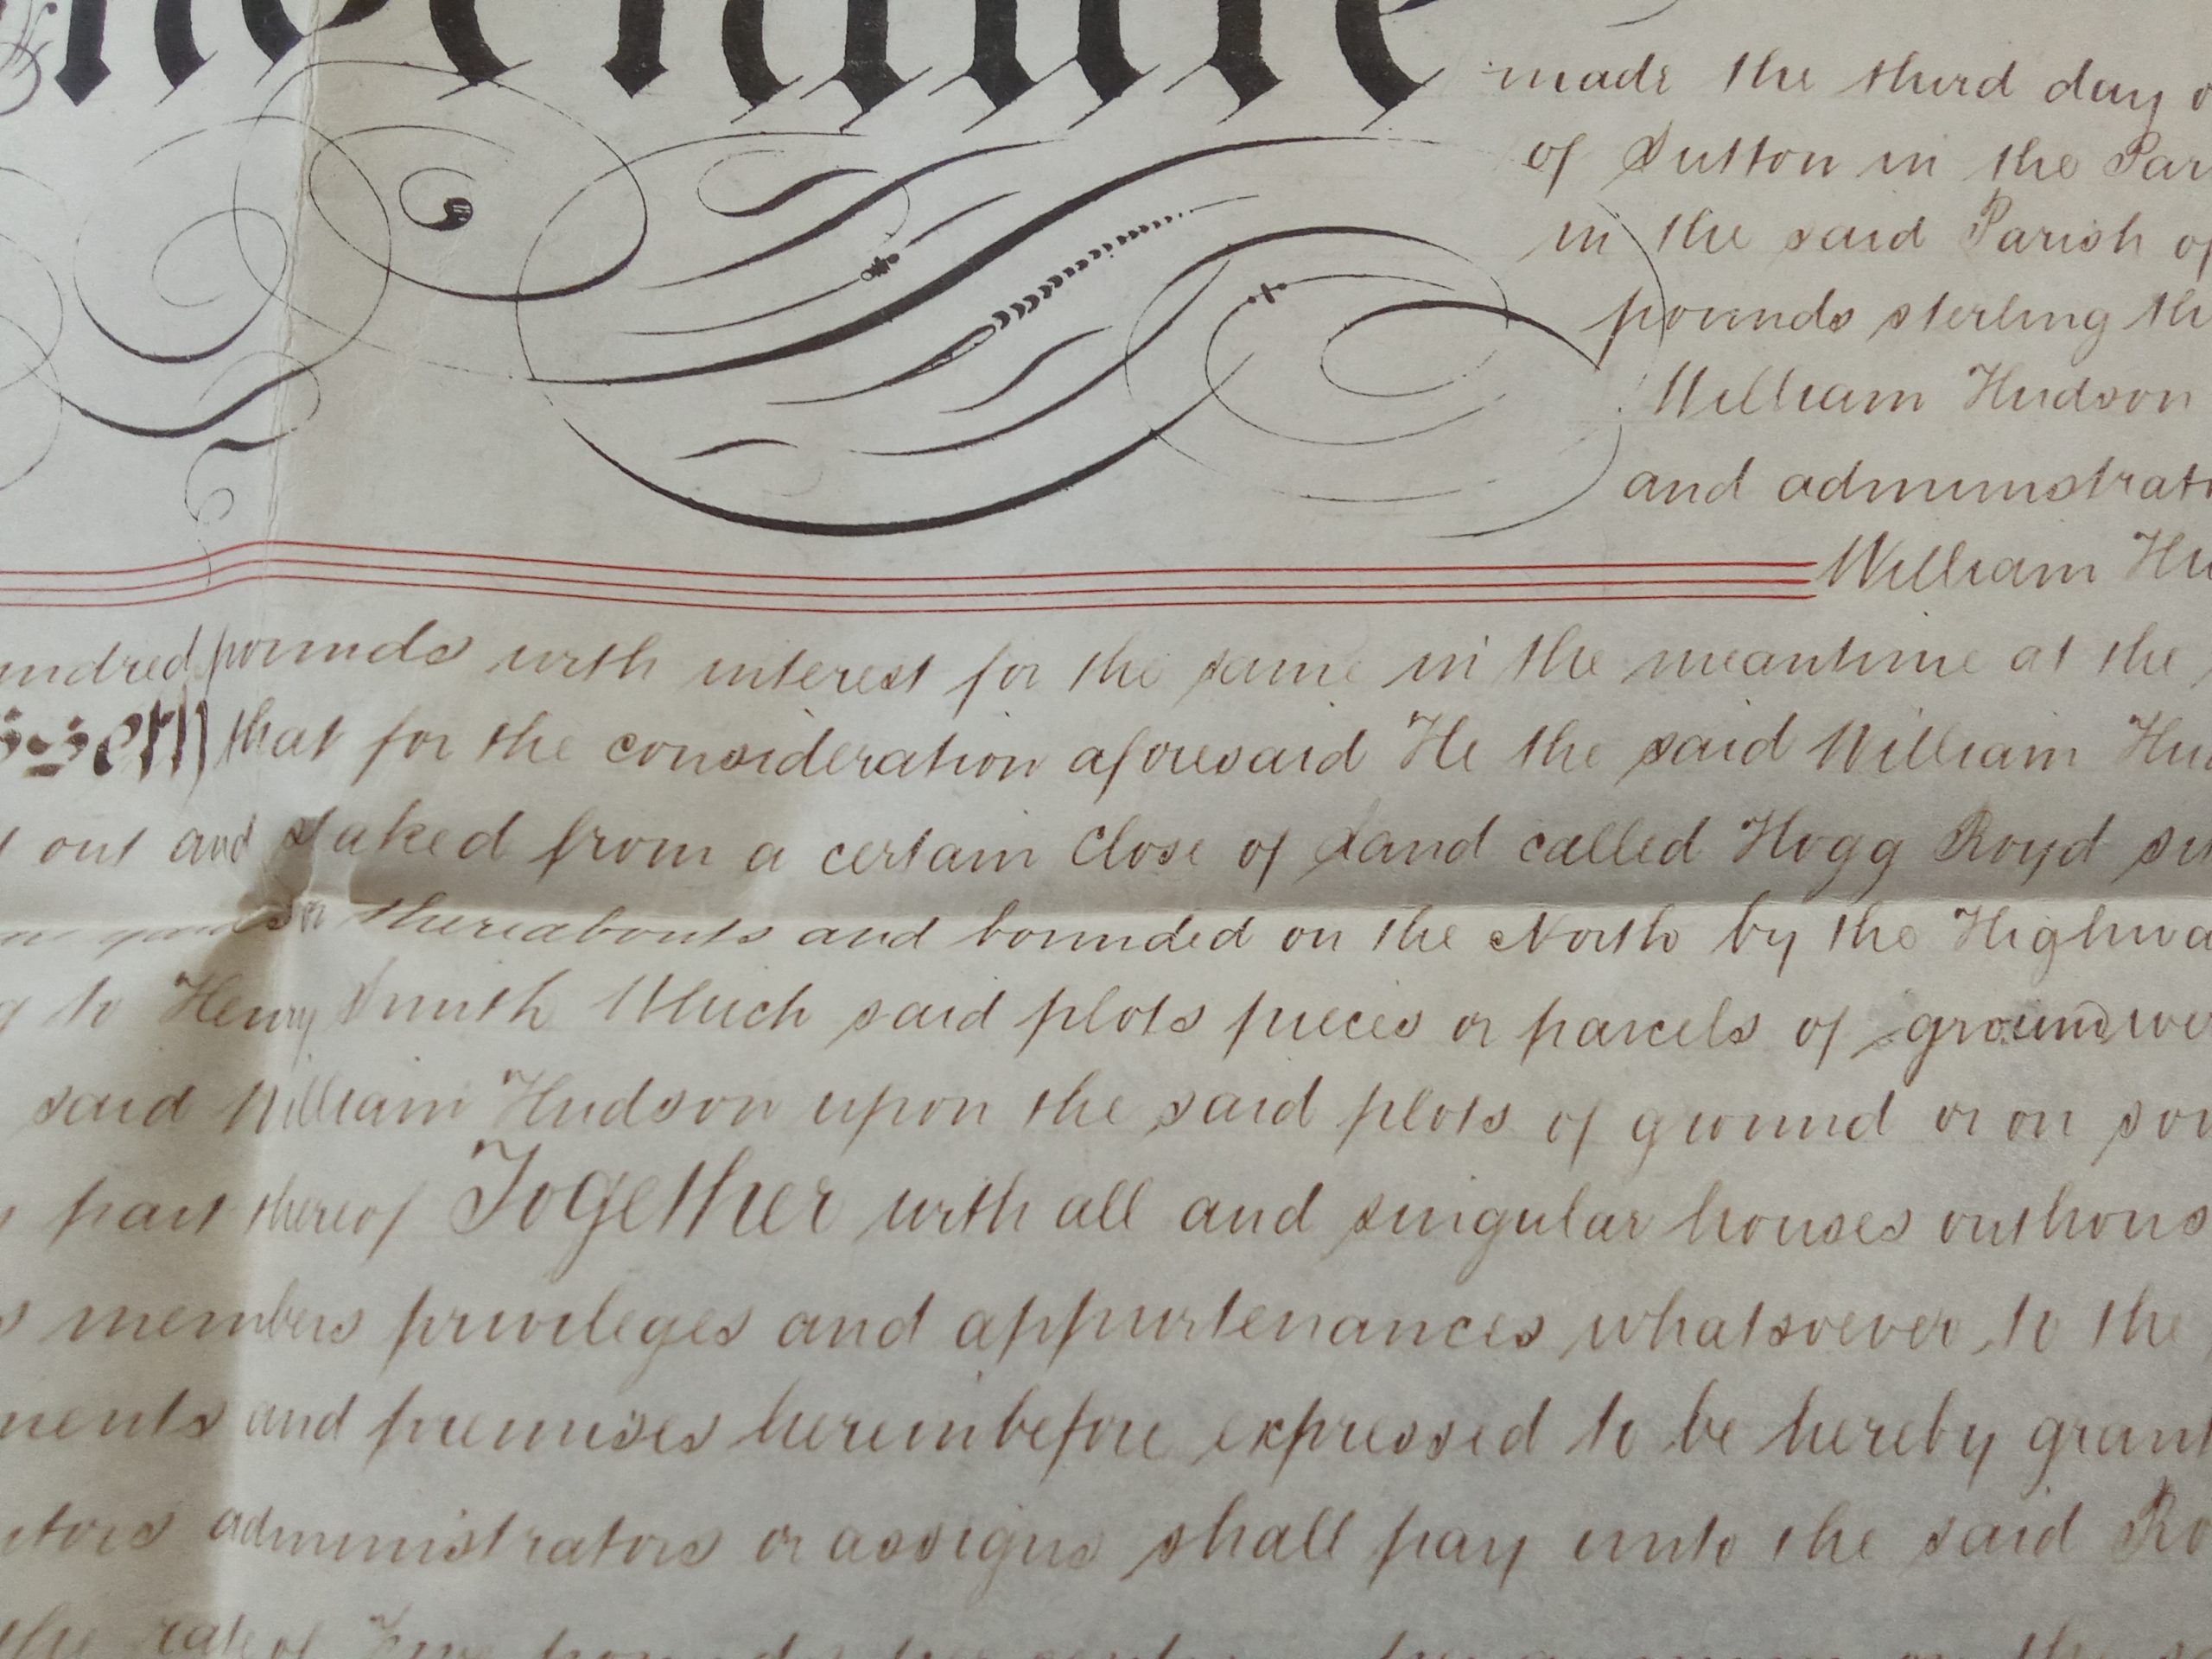 nture
made the third day o
of Sutton in the Par
in the said Parish of
pounds sterling th
William Hudson
and administrat
William Hu
undred pounds with interest for the same in the meantime at the
sseth that for the consideration aforesaid He the said William Hud
t out and staked from a certain Close of Land called Hogg Royd si
or thereabouts and bounded on the North by the Highwa
g to Henry Smith Which said plots pieces or parcels of ground we
said William Hudson upon the said plots of ground or on so
part thereof Together with all and singular houses outhous
s members privileges and appurtenances whatsoever to the
ments and premises hereinbefore expressed to be hereby grant
utors administrators or assigns shall pay unto the said Ro
the rate of Five pounds per centum per annum on the s